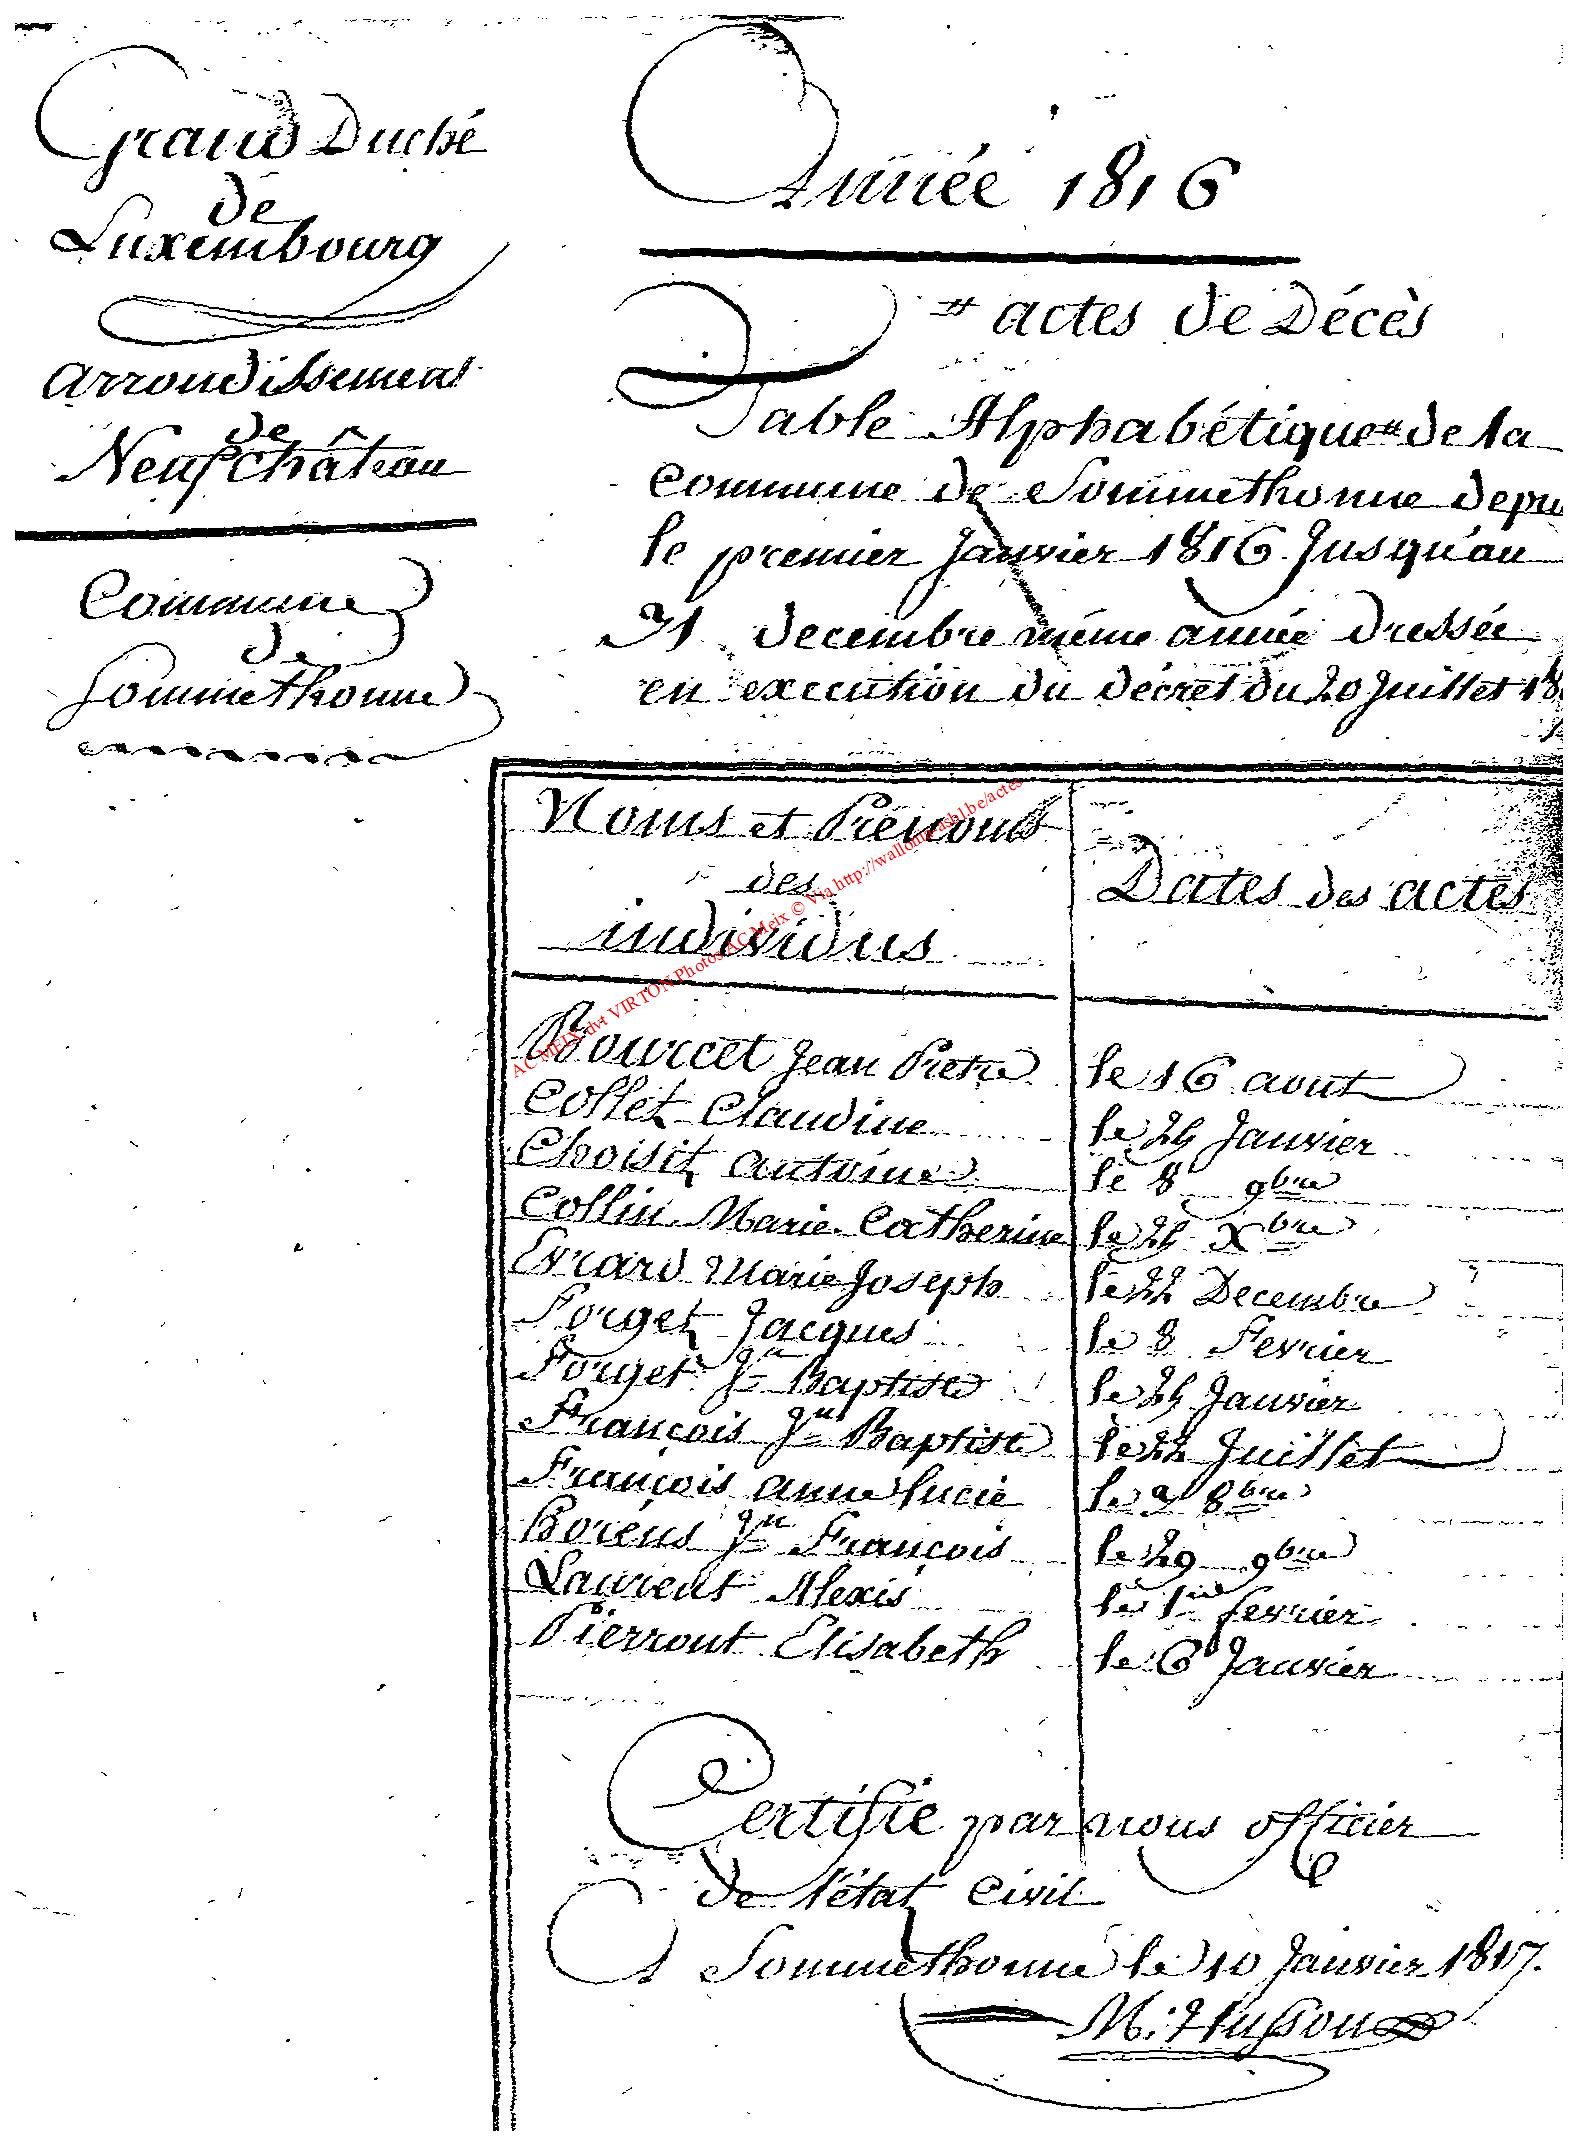 Grand Duché
de
Luxembourg
arrondissement
de
Neufchâteau
Commune
de
Sommethonne
Année 1816
actes de Décès
Table Alphabétique de la
commune de Sommethonne depu
le premier Janvier 1816 Jusqu'au
31 decembre même année dressée
en execution du décret du 20 Juillet 18
Noms et Prenoms
des
individus
Dates des actes
AC MEIX-dvt VIRTON Photos AC Meix © Via http://wallonica.asbl.be/actes
Bourcet Jean Pierre le 16 aout
Collet Claudine le 25 Janvier
Choisit antoine le 8 9bre
Collin Marie Catherine le 25 Xbre
Evrard Marie Joseph le 22 Decembre
Forget Jacques le 8 Fevrier
Forget Jn Baptiste le 25 Janvier
François Jn Baptiste le 22 Juillet
François anne lucie le 2 8bre
Boréns Jn François le 29 9bre
Laurent Alexis le 1er fevrier
Pierrout Elisabeth le 6 Janvier
Certifie par nous officier
de l'état civil
A Sommethonne le 10 Janvier 1817.
M: Husson